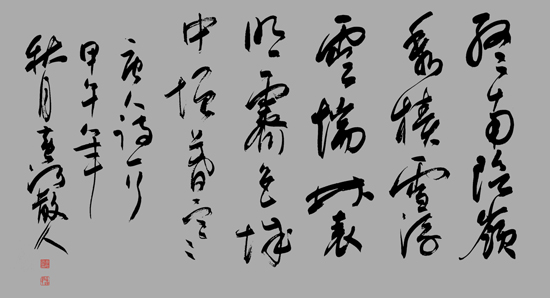 終南陰嶺
秀積雪浮
雲端林表
明霽色城
中增暮寒
唐人詩一首
甲午年
秋月散人